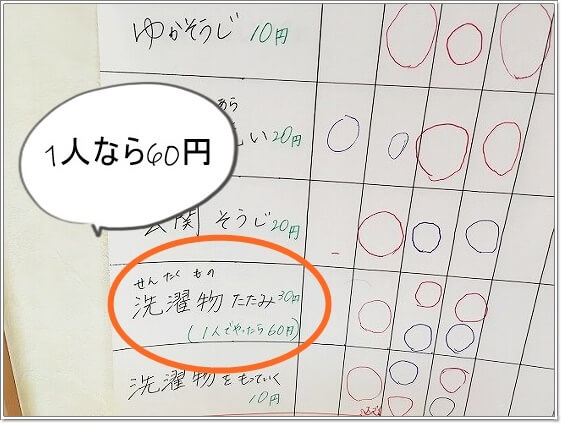 ゆかそうじ 10円
あら
い 20円
1人なら60円
関 そうじ 20円
せんたくもの
洗濯物たたみ 30円
(1人でやったら60円)
洗濯物をもっていく
10円